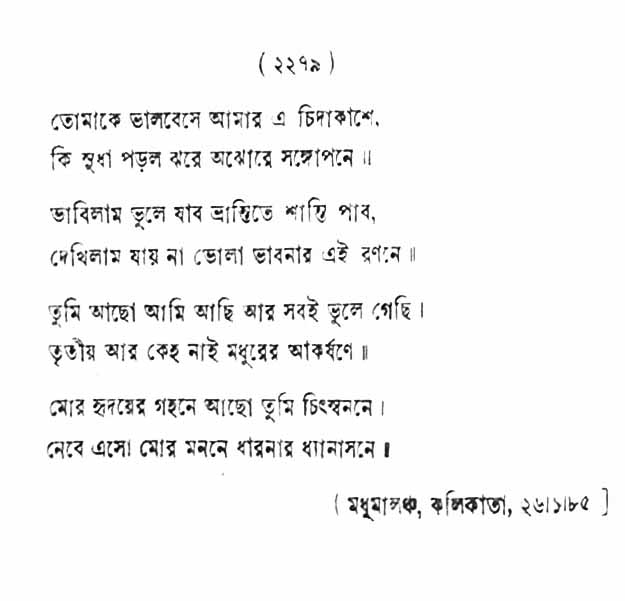 ( ২২৭৯ )
তোমাকে ভালবেসে আমার এ চিদাকাশে,
কি সুধা পড়ল ঝরে অঝোরে সঙ্গোপনে ॥
ভাবিলাম ভুলে যাব ভ্রান্তিতে শান্তি পাব,
দেখিলাম যায় না ভোলা ভাবনার এই রণনে ॥
তুমি আছো আমি আছি আর সবই ভুলে গেছি।
তৃতীয় আর কেহ নাই মধুরের আকর্ষণে ॥
মোর হৃদয়ের গহনে আছো তুমি চিৎস্বননে।
নেবে এসো মোর মননে ধারনার ধ্যানাসনে ॥
( মধুমালঞ্চ, কলিকাতা, ২৬।১।৮৫ ]